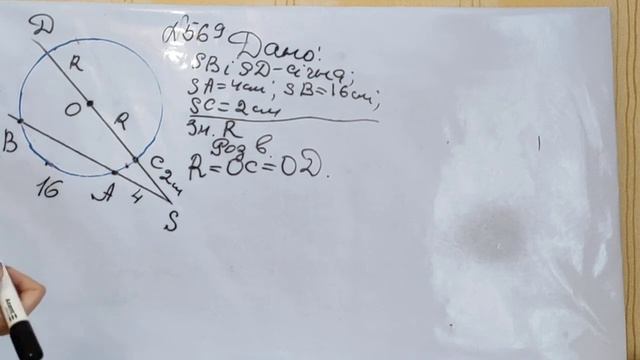 №569 Дано:
SB i SD-січна;
SA=4см; SB=16см;
SC=2см
Зн. R
Розв.
R=OC=OD.
D
R
O
R
B
C
2см
16
A
4
S